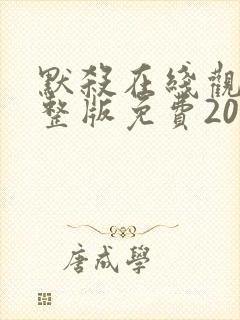 默殺在綫觀
整版免費20
唐咸學